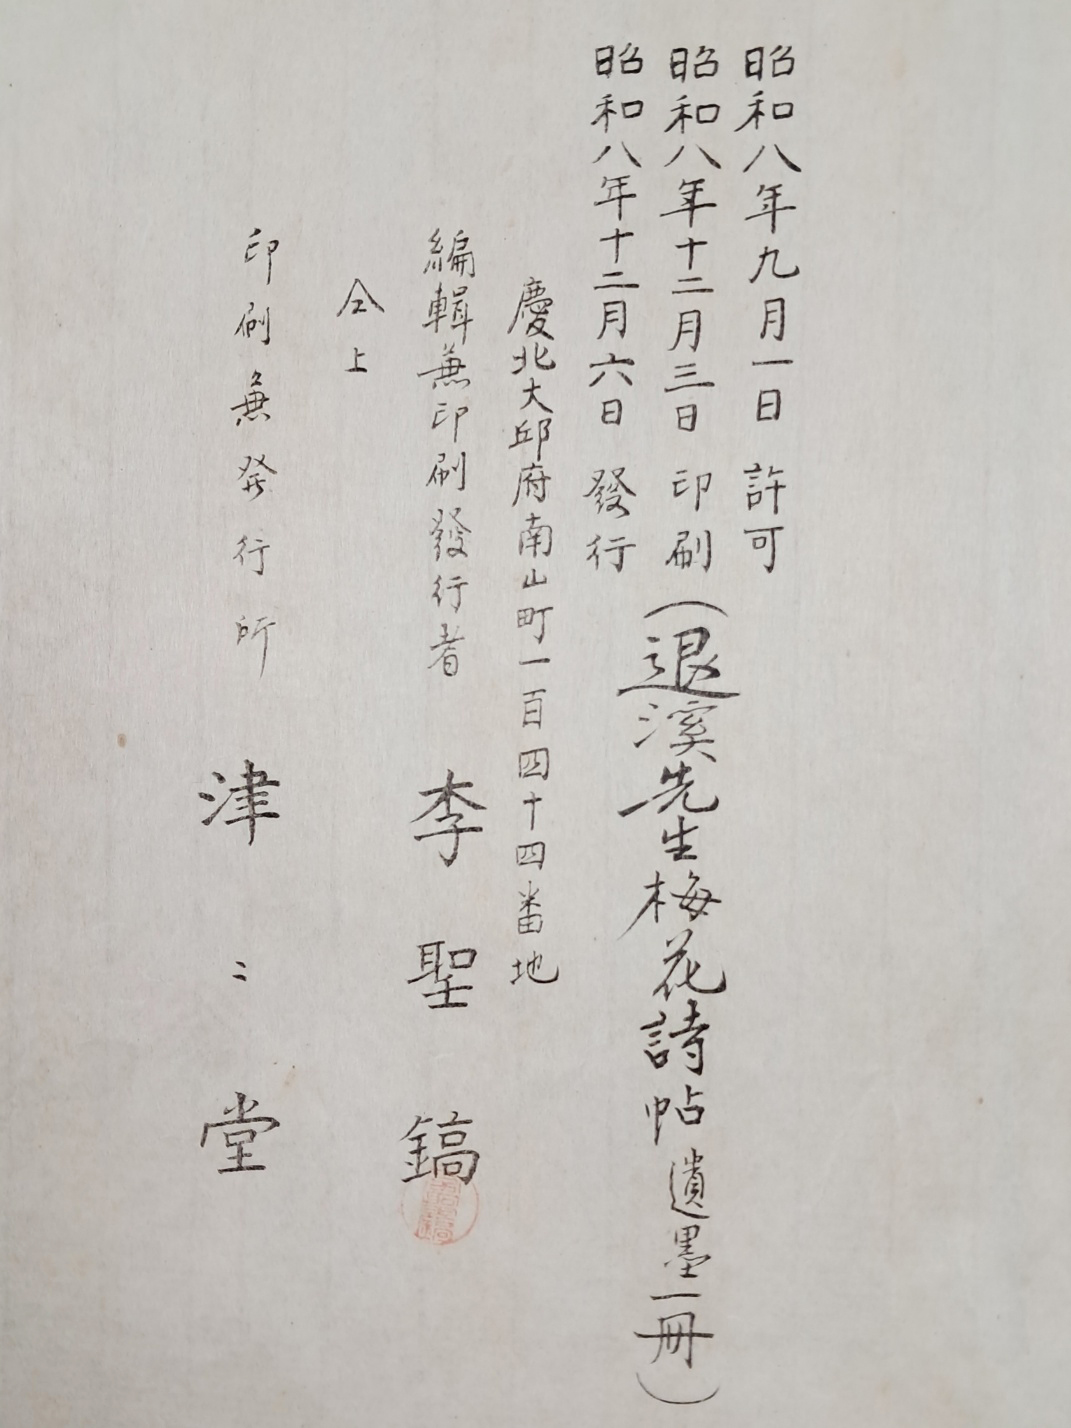 昭和八年九月一日 許可
昭和八年十二月三日 印刷
昭和八年十二月六日 發行
(退溪先生梅花詩帖遺墨一冊)
慶北大邱府南山町一百四十四番地
編輯兼印刷發行者 李聖鎬
仝上
印刷兼発行所 津〻堂